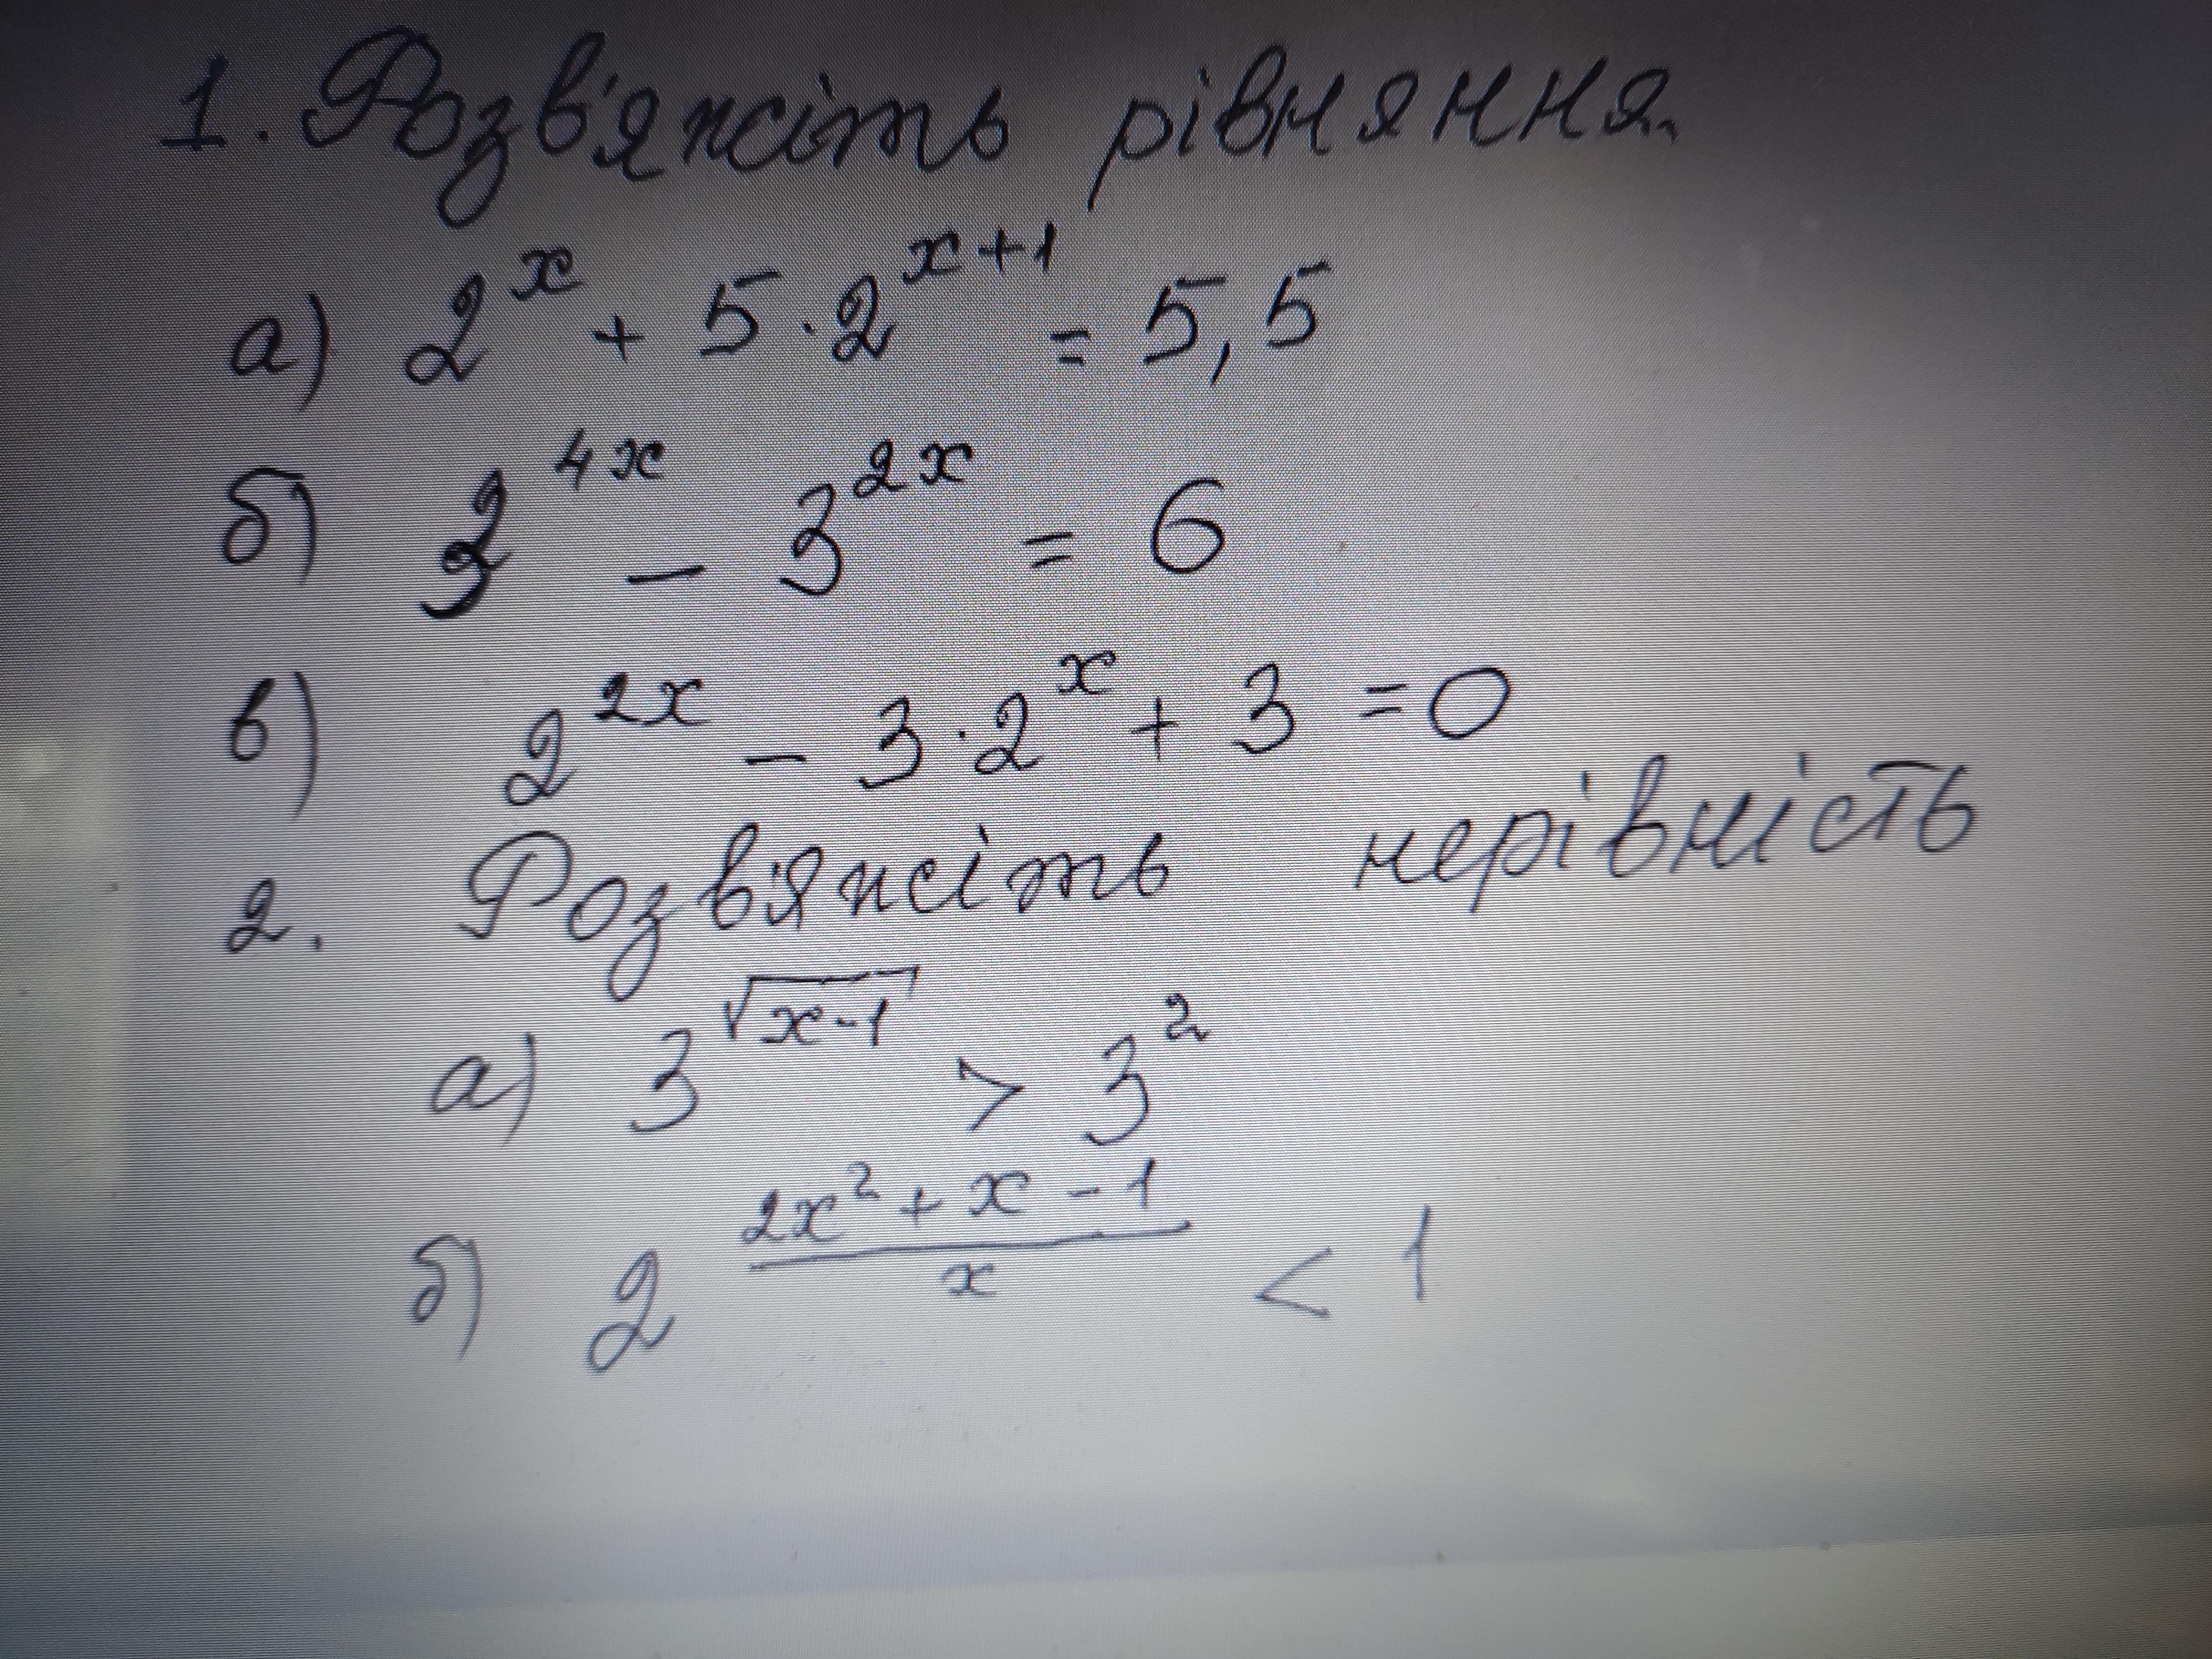 1. Розв'яжіть рівняння.
а) 2^x + 5 · 2^{x+1} = 5,5
б) 3^{4x} - 3^{2x} = 6
в) 2^{2x} - 3 · 2^x + 3 = 0
2. Розв'яжіть нерівність
а) 3^{√(x-1)} > 3^2
б) 2^{(2x^2 + x - 1)/x} < 1